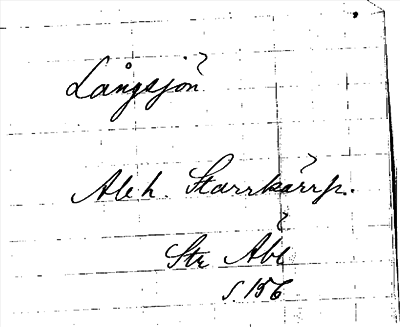 Långsjön
Ale h. Starrkärrs.
Str Åbl
S. 156